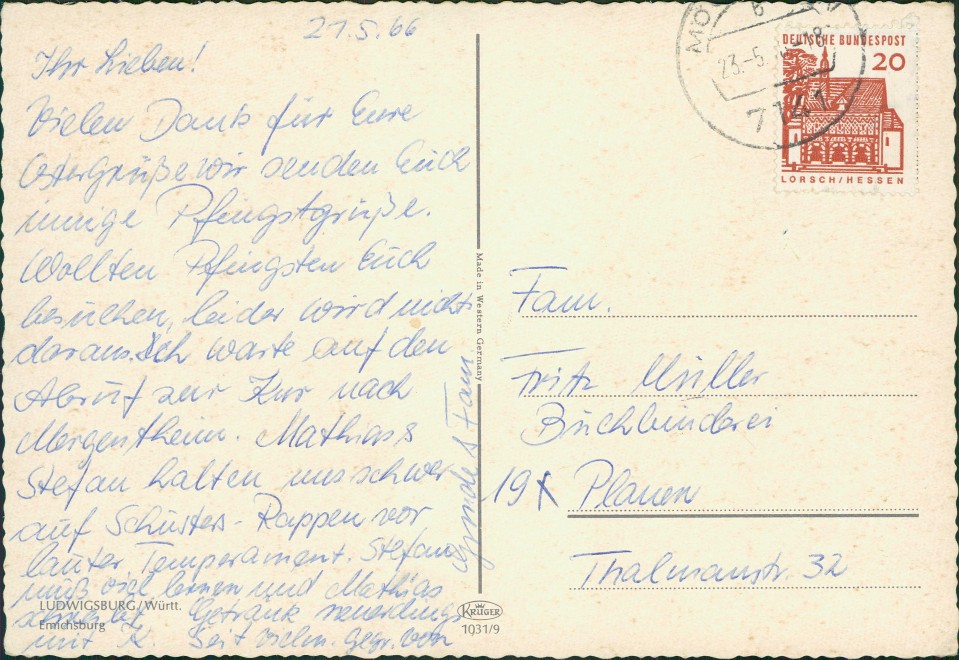 21.5.66
Ihr Lieben!
Vielen Dank für Eure
Ostergrüße wir senden Euch
innige Pfingstgrüße.
Wollten Pfingsten Euch
besuchen, leider wird nichts
daraus. Ich warte auf den
Abruf zur Kur nach
Mergentheim. Mathias &
Stefan halten uns schwer
auf Schusters-Rappen vor
lauter Temperament. Stefan
muß viel lernen und Mathias
Getränk neuerdings
mit K. Seid vielm. gegr. von
& Fam.
LUDWIGSBURG/Württ.
Emichsburg
Made in Western Germany
KRÜGER
1031/9
MÖ
B
23.-5. -18
7141
DEUTSCHE BUNDESPOST
20
LORSCH/HESSEN
Fam.
Fritz Müller
Buchbinderei
19x Plauen
Thalmanstr. 32